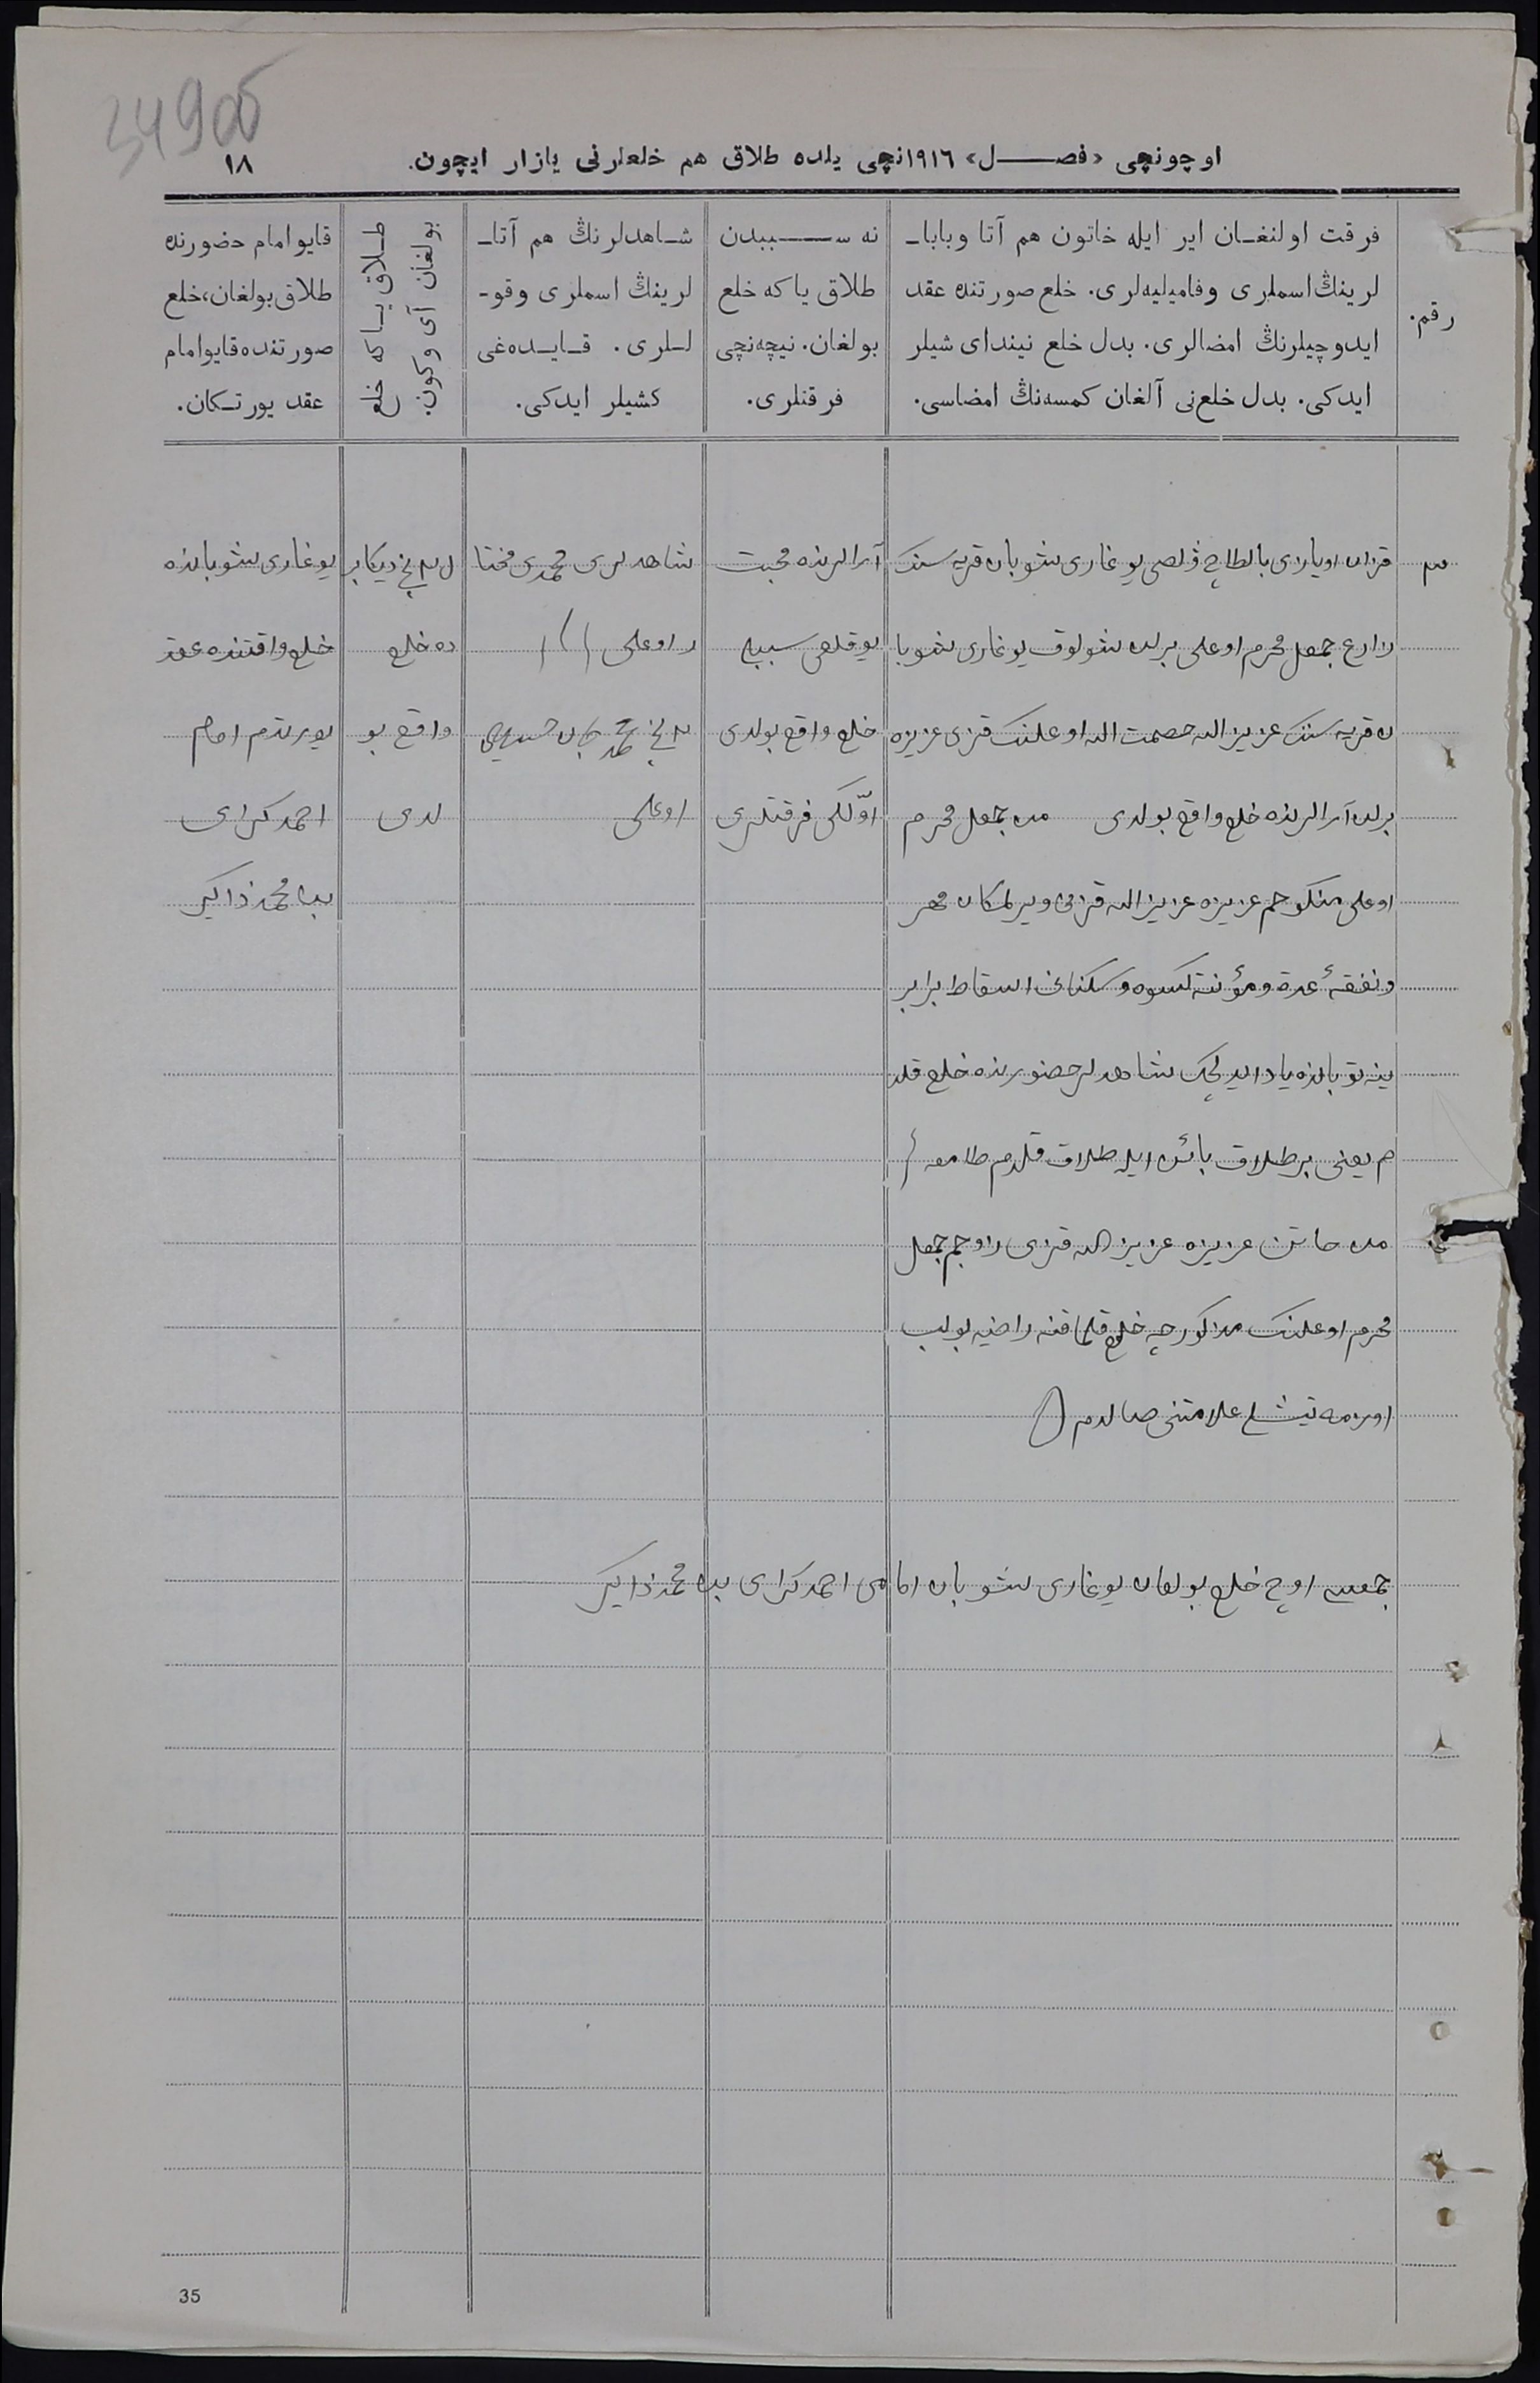 34900
١٨
اوچونچی «فصل» ١٩١٦نچی یلده طلاق هم خلعلرنی یازار ایچون.
رقم.
فرقت اولنغان ایر ایله خاتون هم آتا وبابا-
لرینڭ اسملری وفامیلیه‌لری. خلع صورتنده عقد
ایدوچیلرنڭ امضالری. بدل خلع نیندای شیلر
ایدکی. بدل خلع‌نی آلغان کمسه‌نڭ امضاسی.
نه سببدن
طلاق یاکه خلع
بولغان. نیچه‌نچی
فرقتلری.
شاهدلرنڭ هم آتا-
لرینڭ اسملری وقو-
للری. قایده‌غی
کشیلر ایدکی.
طلاق یاکه خلع
بولغان آی وکون.
قایو امام حضورنده
طلاق بولغان، خلع
صورتنده قایو امام
عقد یورتکان.
٣
قزان اویازی بالطاچ ۋلصی یوغاری شوبان قریه سنک
محرم اوغلی برلن شولوق یوغاری شوبا
ن قریه سنک عزیز الله اوغلنک قزی عزیزه
برلن آرالرنده خلع واقع بولدی من جمعل محرم
اوغلی منکوحم عزیزه عزیزالله قزنی ویرلکان مهر
ونفقهٔ عدة ومؤنت کسوه وسکنانی اسقاط برابر
ینه تو بالنده یاد ایدلجک شاهدلر حضورنده خلع قلد
م یعنی بر طلاق بائن ایله طلاق قلدم
من خاتن عزیزه عزیز الله قزی زوجم جمعل
محرم اوغلنک مذکورچه خلع قلماقنه راضیه بولب
علامتنی صالدم
آرالرنده محبت
یوقلغی سببلی
خلع واقع بولدی
اوّلکی فرقتلری
شاهدلری محمدی مختا
ر اوغلی
٢ نچی محمد جان
اوغلی
نچی دیکابر
ده خلع
واقع بو
لدی
یوغاری شوبانده
خلع واقتنده عقد
یورتدم امام
احمد کرای
بن محمد ذاکیر
جمعسی اوچ خلع بولغان یوغاری شوبان امامی احمد کرای بن محمد ذاکیر
35